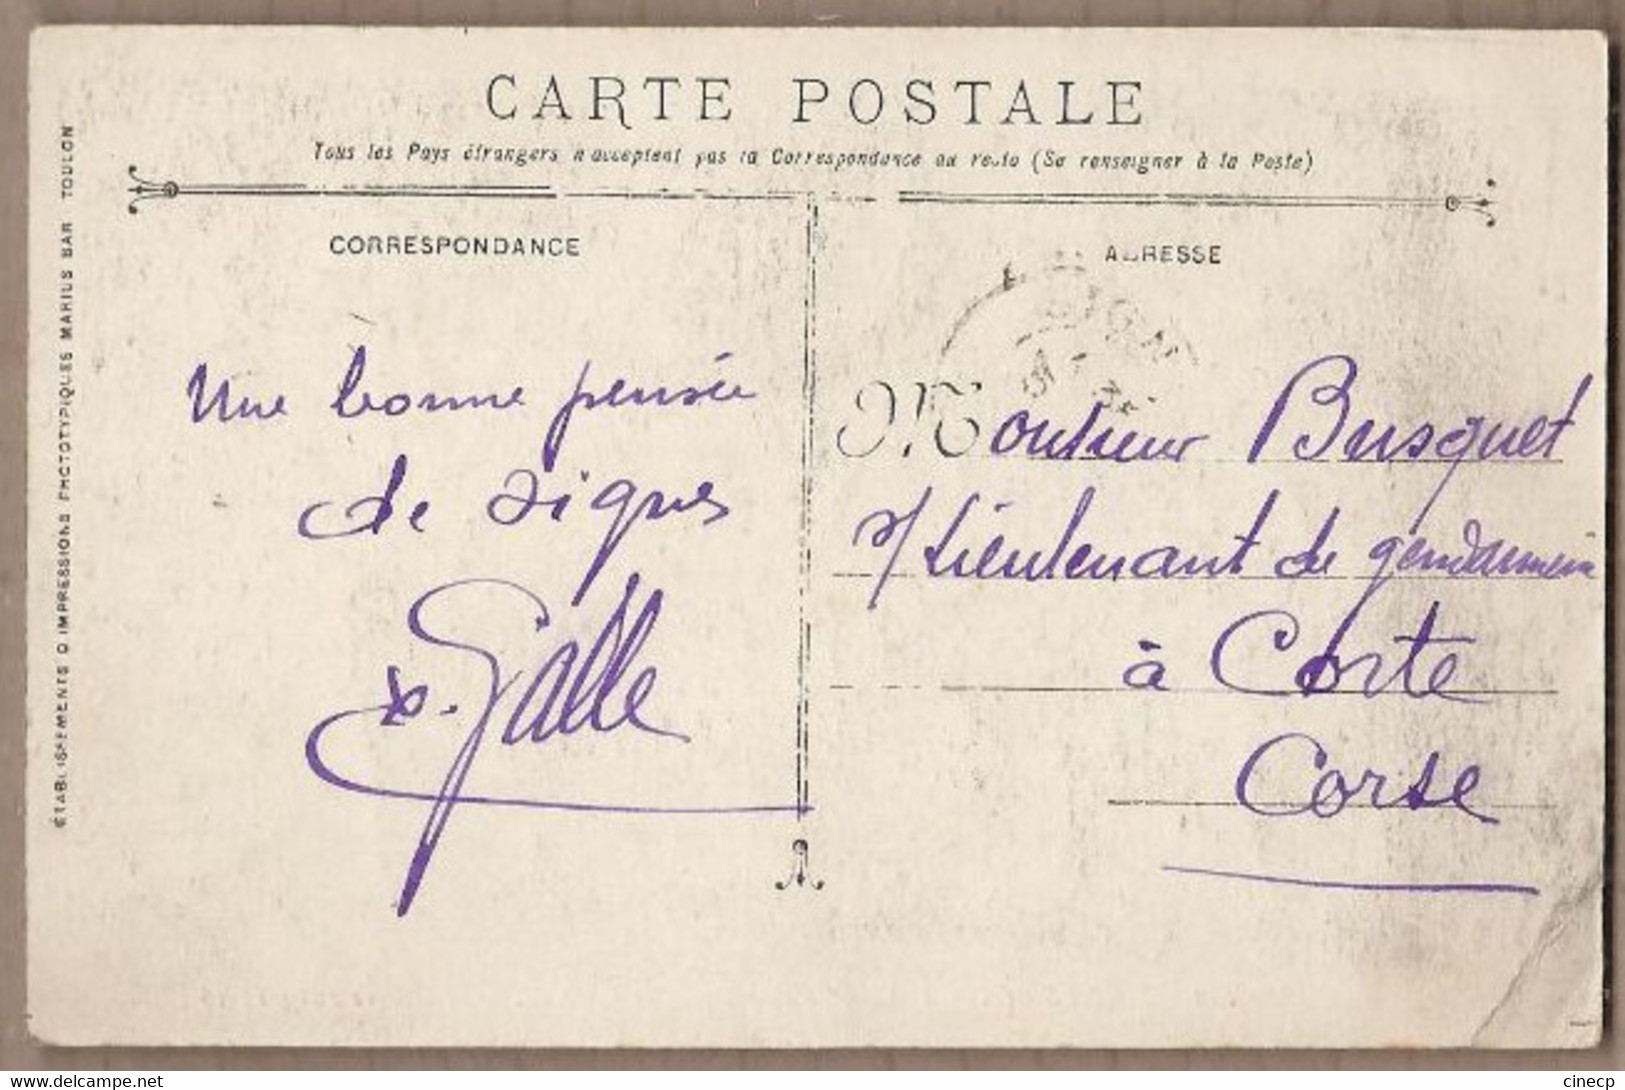 CARTE POSTALE
Tous les Pays étrangers n'acceptent pas la Correspondance au recto (Se renseigner à la Poste)
CORRESPONDANCE
ADRESSE
Une bonne pensée
de Signes
Galle
Monsieur Busquet
s/Lieutenant de gendarmerie
à Corte
Corse
ÉTABLISSEMENTS D'IMPRESSIONS PHOTOTYPIQUES MARIUS BAR TOULON
delcampe.net
cinecp